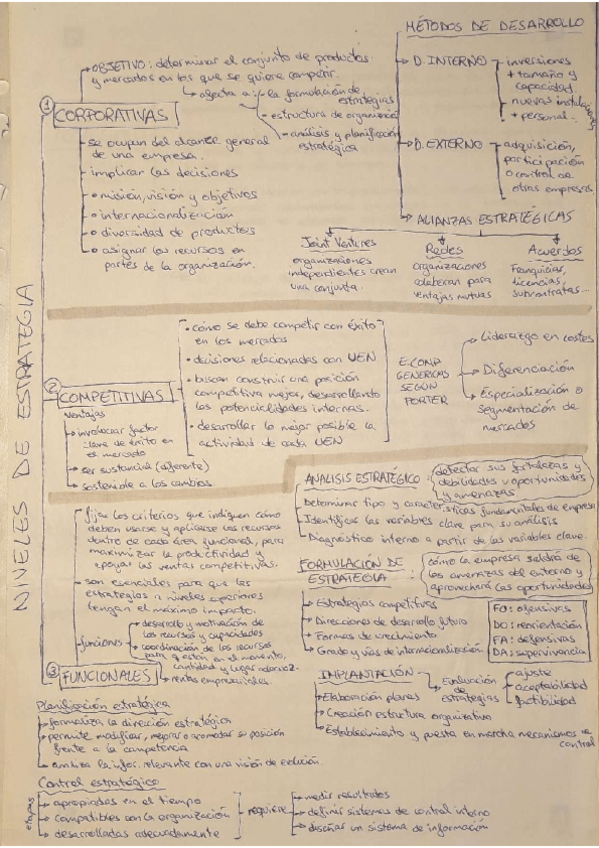 NIVELES DE ESTRATEGIA
① CORPORATIVAS
OBJETIVO: determinar el conjunto de productos
y mercados en los que se quiere competir.
afecta a: - la formulación de
estrategias
- estructura de organización
- análisis y planificación
estratégica
- se ocupan del alcance general
de una empresa.
- implicar las decisiones
• misión, visión y objetivos
• internacionalización
• diversidad de productos
• asignar los recursos en
partes de la organización.
MÉTODOS DE DESARROLLO
D. INTERNO
inversiones
+ tamaño y
capacidad
nuevas
+ personal
D. EXTERNO
adquisición,
participación
o control de
otras empresas.
ALIANZAS ESTRATÉGICAS
Joint Ventures
organizaciones
independientes crean
una conjunta.
Redes
organizaciones
colaboran para
ventajas mutuas
Acuerdos
Franquicias,
licencias,
subcontratas...
② COMPETITIVAS
Ventajas
involucrar factor
clave de éxito en
el mercado
ser sustancial (diferente)
sostenible a los cambios
• cómo se debe competir con éxito
en los mercados
• decisiones relacionadas con UEN
• buscan construir una posición
competitiva mejor, desarrollando
las potencialidades internas.
• desarrollar lo mejor posible la
actividad de cada UEN
GENERICAS
SEGÚN
PORTER
Liderazgo en costes
Diferenciación
Especialización o
segmentación de
mercados
③ FUNCIONALES
- fijar los criterios que indiquen cómo
deben usarse y aplicarse los recursos
dentro de cada área funcional, para
maximizar la productividad y
apoyar las ventas competitivas.
- son esenciales para que las
estrategias a niveles superiores
tengan el máximo impacto.
- funciones
desarrollo y motivación de
los recursos y capacidades
coordinación de los recursos
para q estén en el momento,
cantidad y lugar
rentas empresariales
ANALISIS ESTRATÉGICO:
detectar sus fortalezas y
debilidades u oportunidades
y amenazas
Determinar tipo y características fundamentales de empresa
Identificar las variables clave para su análisis
Diagnóstico interno a partir de las variables clave.
FORMULACIÓN DE
ESTRATEGIA:
cómo la empresa saldrá de
las amenazas del entorno y
aprovechará las oportunidades
Estrategias competitivas
Direcciones de desarrollo futuro
Formas de crecimiento
Grado y vías de internacionalización
FO: ofensivas
DO: reorientación
FA: defensivas
DA: supervivencia
IMPLANTACIÓN
Evaluación
de
estrategias
ajuste
aceptabilidad
factibilidad
Elaboración planes
Creación estructura organizativa
Establecimiento y puesta en marcha mecanismos de
control
Planificación estratégica
formaliza la dirección estratégica
permite modificar, mejorar o acomodar su posición
frente a la competencia
la infor. relevante con una visión de evolución.
Control estratégico
etapas
apropiadas en el tiempo
compatibles con la organización
desarrolladas adecuadamente
requiere
medir resultados
definir sistemas de control interno
diseñar un sistema de información